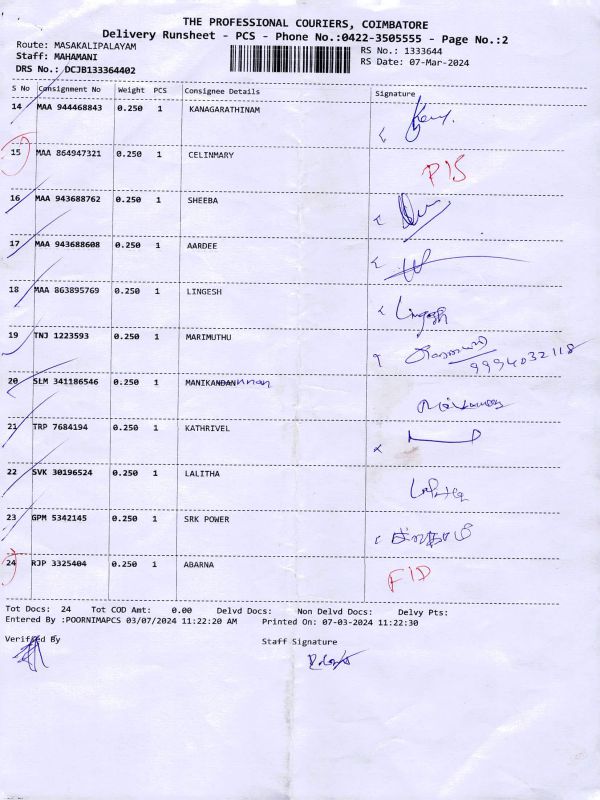 THE PROFESSIONAL COURIERS, COIMBATORE
Delivery Runsheet - PCS - Phone No.:0422-3505555 - Page No.:2
Route: MASAKALIPALAYAM RS No.: 1333644
Staff: MAHAMANI RS Date: 07-Mar-2024
DRS No.: DCJB133364402
S No Consignment No Weight PCS Consignee Details Signature
14 MAA 944468843 0.250 1 KANAGARATHINAM
15 MAA 864947321 0.250 1 CELINMARY
16 MAA 943688762 0.250 1 SHEEBA
17 MAA 943688608 0.250 1 AARDEE
18 MAA 863895769 0.250 1 LINGESH Lingesh
19 TNJ 1223593 0.250 1 MARIMUTHU 9994032118
20 SLM 341186546 0.250 1 MANIKANDAN
21 TRP 7684194 0.250 1 KATHRIVEL
22 SVK 30196524 0.250 1 LALITHA
23 GPM 5342145 0.250 1 SRK POWER
24 RJP 3325404 0.250 1 ABARNA
Tot Docs: 24 Tot COD Amt: 0.00 Delvd Docs: Non Delvd Docs: Delvy Pts:
Entered By :POORNIMAPCS 03/07/2024 11:22:20 AM Printed On: 07-03-2024 11:22:30
Verified By Staff Signature